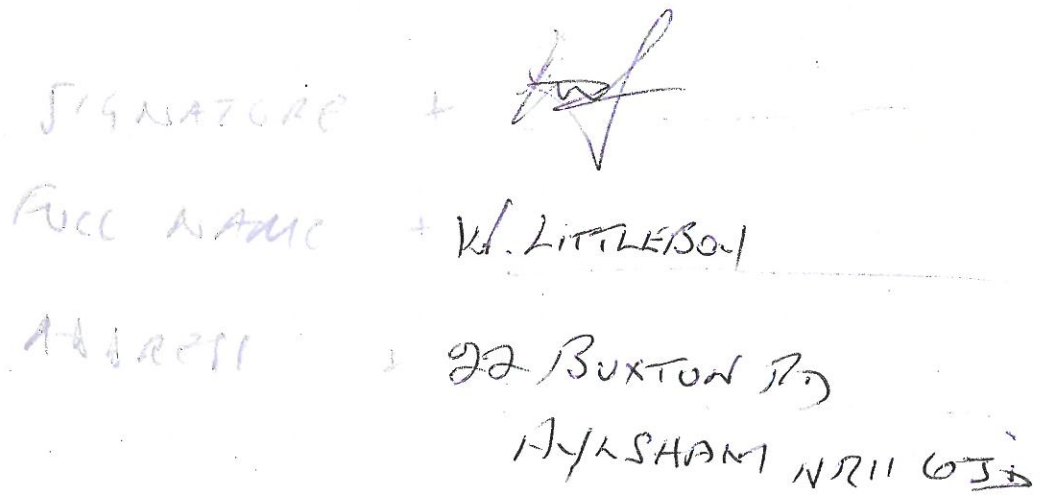 SIGNATURE +
FULL NAME + W. LITTLEBOY
ADDRESS : 22 BUXTON RD
AYLSHAM NR11 6JD